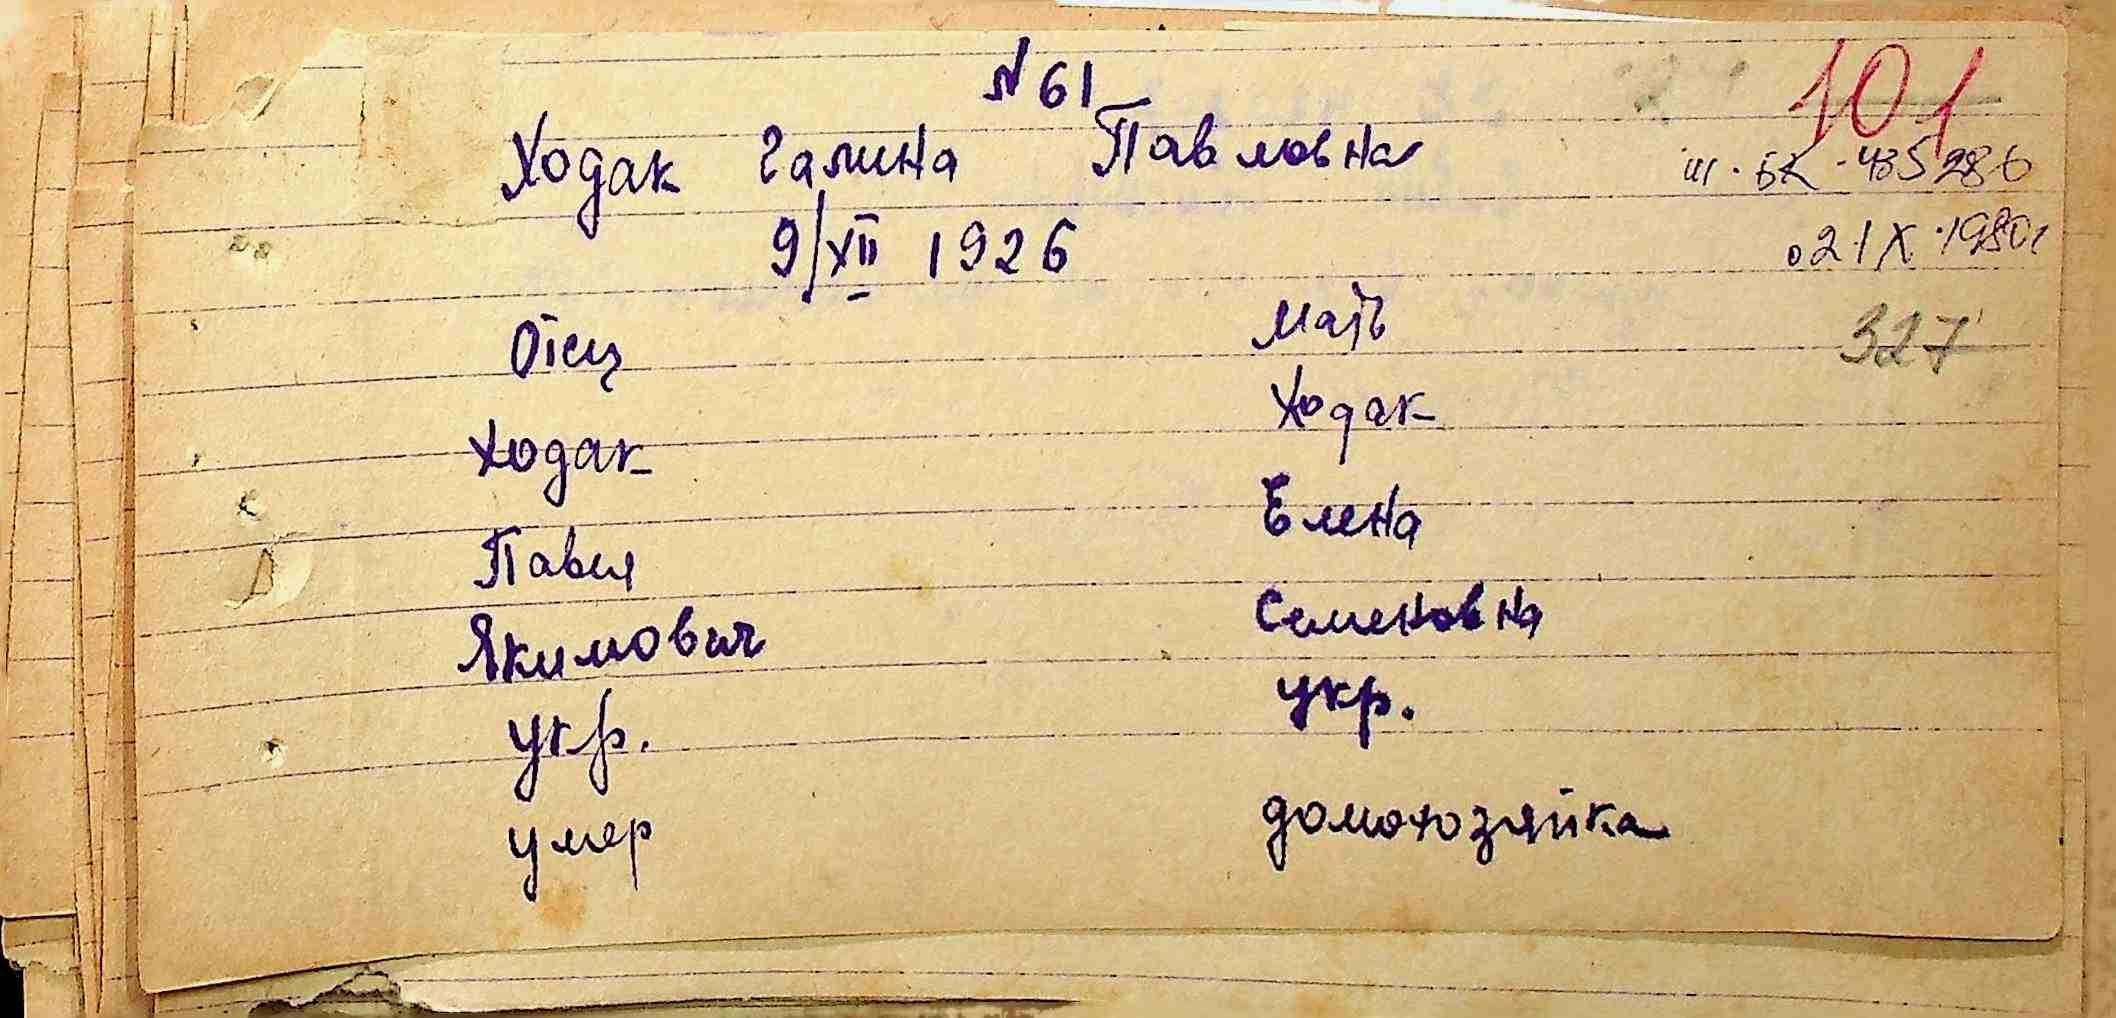 № 61
101
Ходак Галина Павловна
III-БК-435286
9/XII 1926
02 IX 1980г
327
Отец
Мать
Ходак
Ходак
Павел
Елена
Якимович
Семеновна
укр.
укр.
умер
домохозяйка